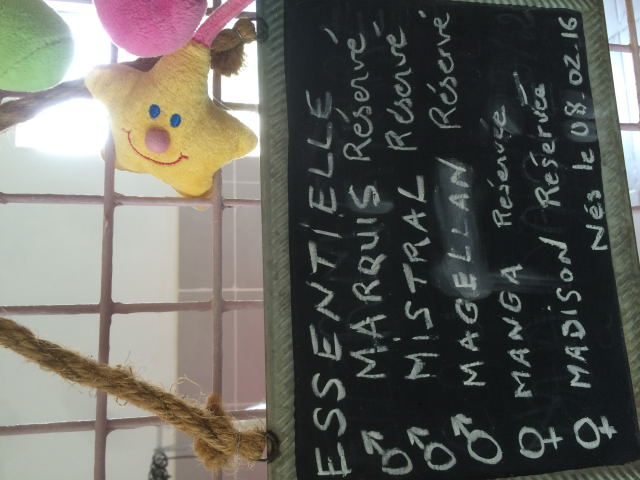 ESSENTIELLE
♂ MARQUIS Réservé
♂ MISTRAL Réservé
♂ MAGELLAN Réservé
♀ MANGA Réservée
♀ MADISON Réservée
Nés le 08.02.16